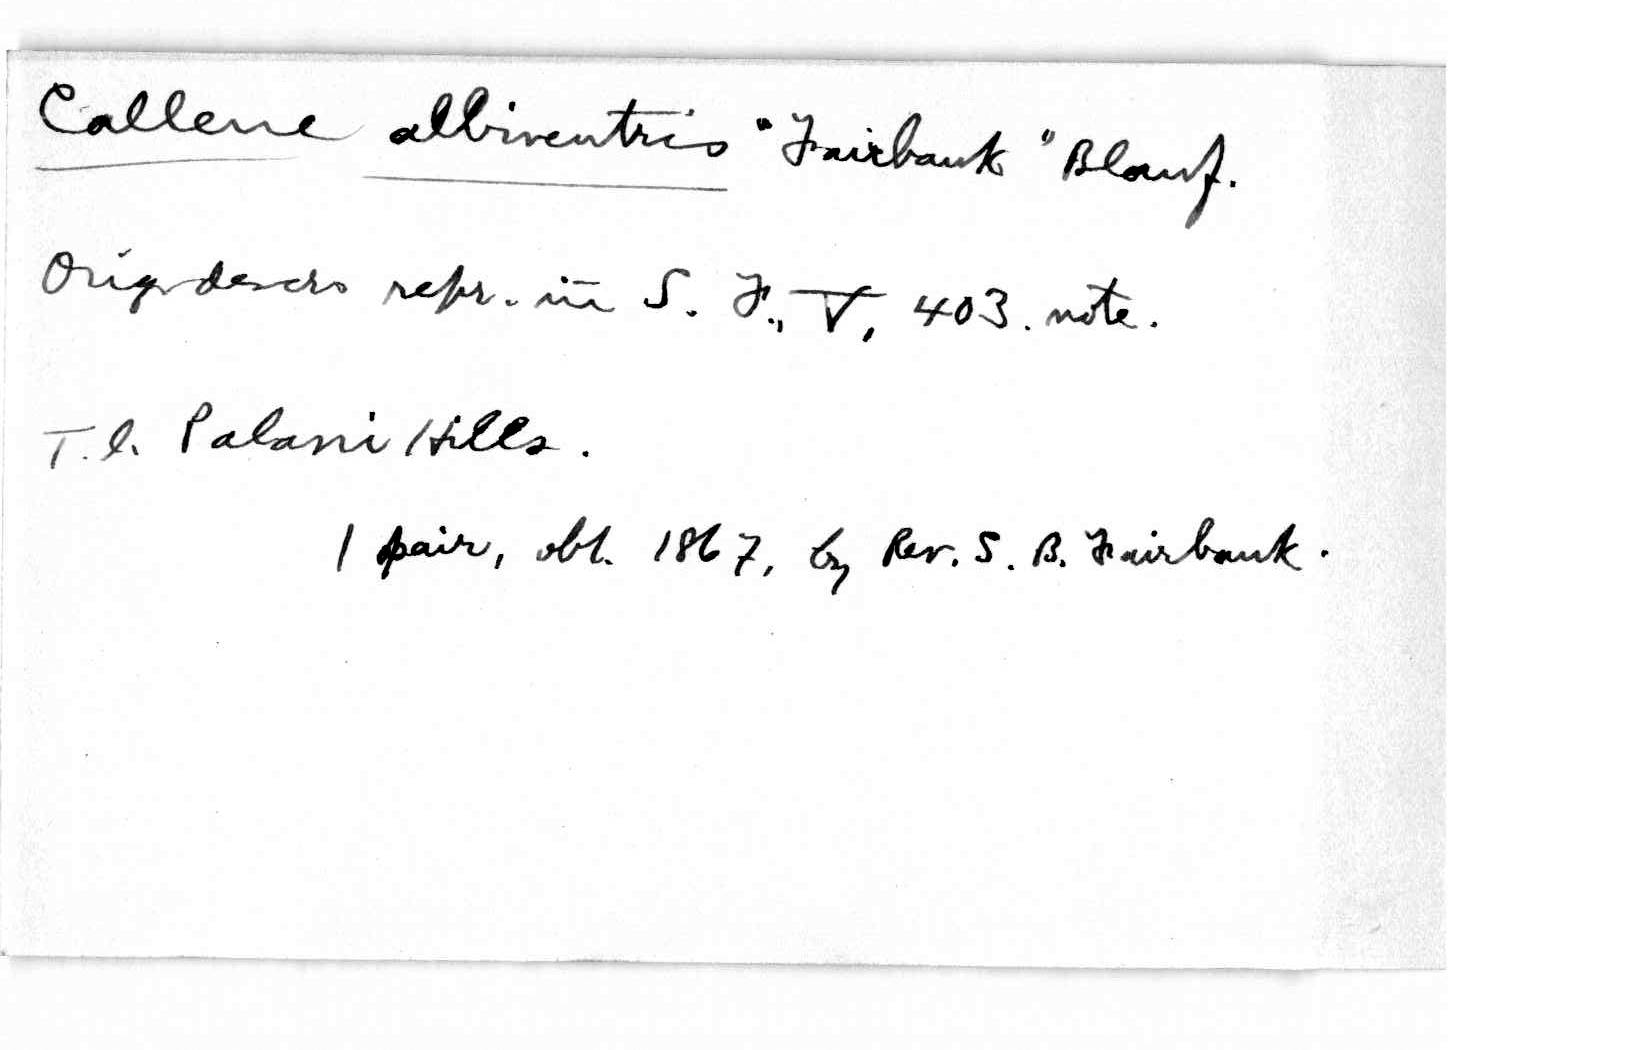 Callene albiventris "Fairbank" Blanf.
Orig. descr. repr. in S. F., V, 403. note.
T. l. Palani Hills.
1 pair, obt. 1867, by Rev. S. B. Fairbank.